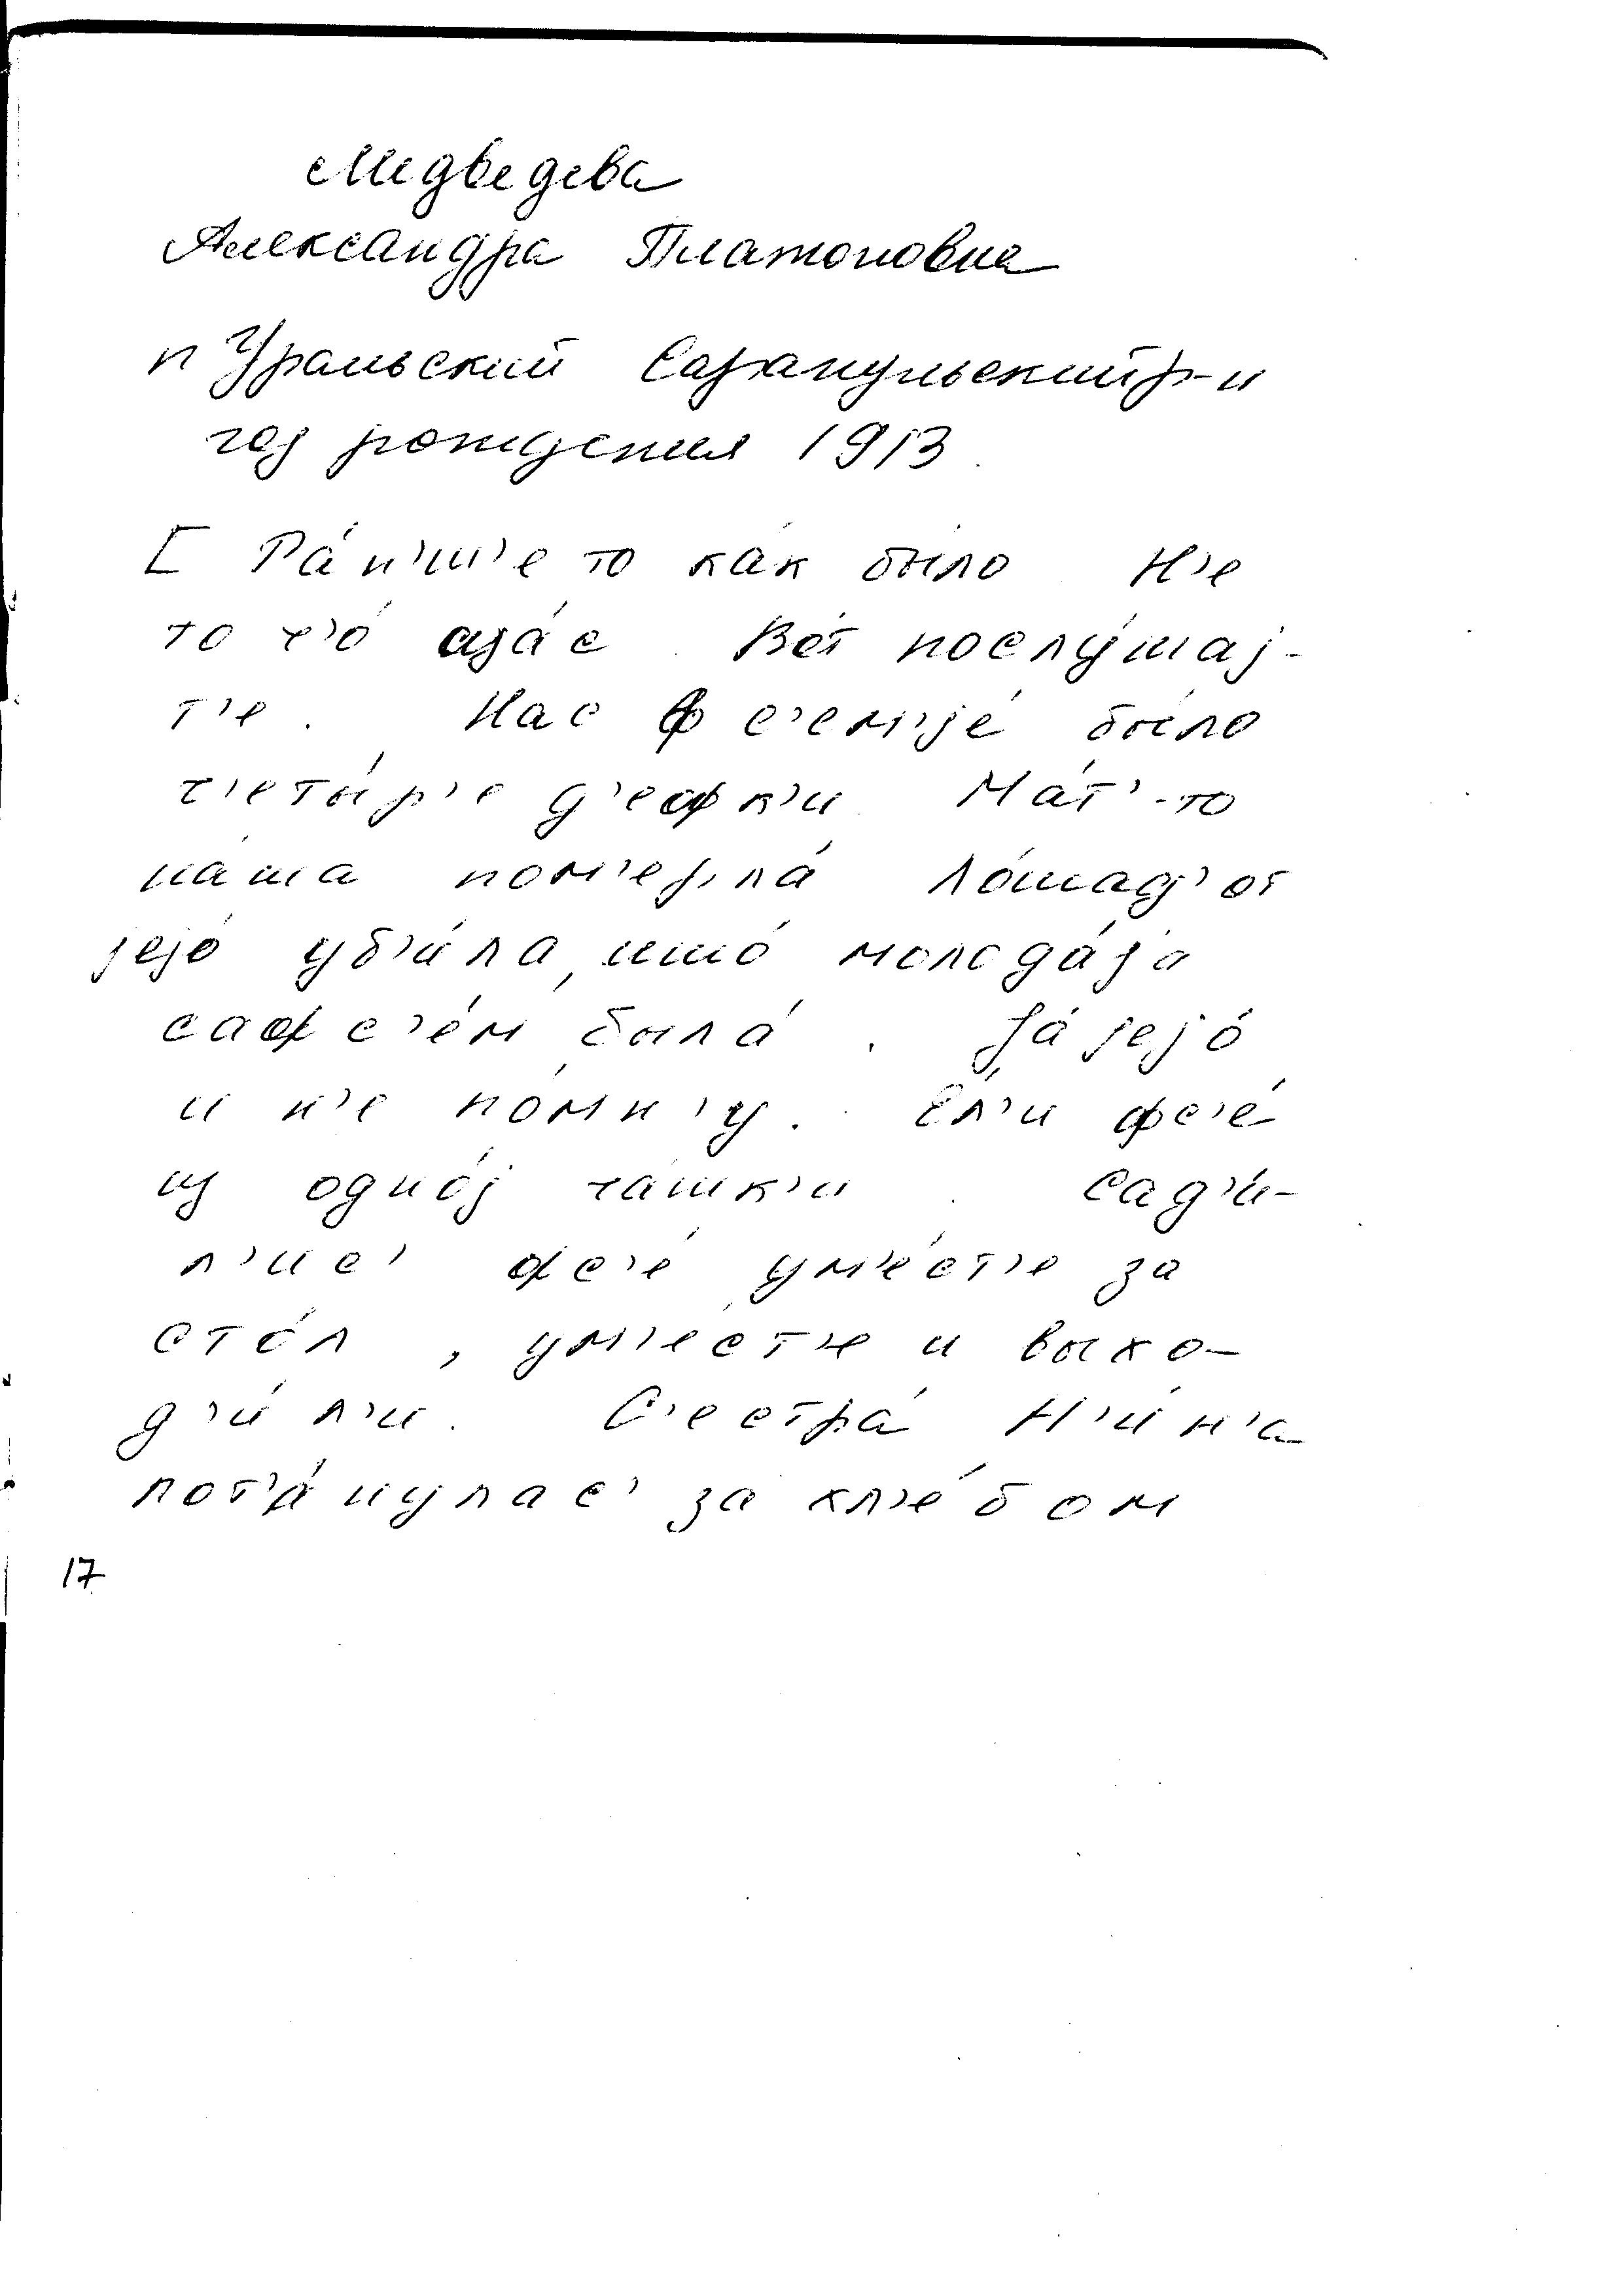 Медведева
Александра Платоновна
п Уральский Сарапульский р-н
год рождения 1913
[ Ра́н'ш'е то ка́к бы́ло Н'е
то ч'о́ сича́с. Во́т послу́шај-
т'е. Нас ф с'ем'јé бы́ло
ч'еты́р'е д'е́фк'и. Ма́т'-то
на́ша пом'ерла́ ло́шад'от
јејо́ уб'и́ла, ишо́ молода́ја
сафс'е́м была́. Ја́ јејо́
и н'е по́мн'у. Éл'и фс'é
из одно́ј ча́шк'и. Сад'и́-
л'ис' фс'é ум'éст'е за
сто́л, ум'éст'е и выхо-
д'и́л'и. С'естра́ Н'и́н'а
пот'а́нулас' за хл'éбом
17